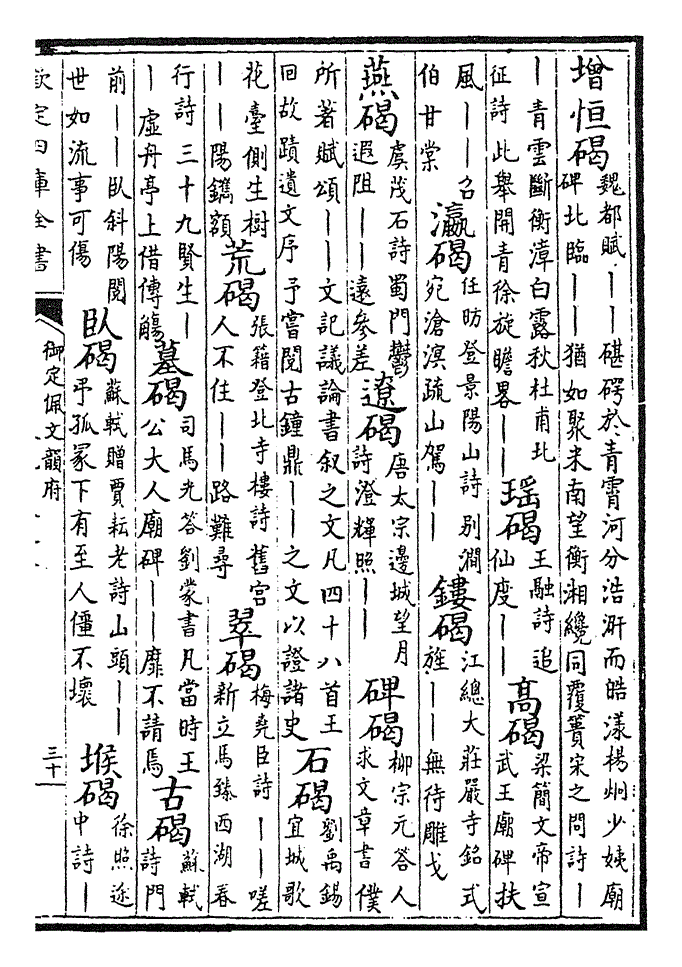 增恒碣魏都賦——碪於青霄河分浩汧而皓溔楊炯少姨廟
碑北臨——猶如聚米南望衡湘纔同覆簣宋之問詩—
—青雲斷衡漳白露秋杜甫北
征詩此舉開青徐旋瞻畧——瑶碣王融詩追
仙度——髙碣梁簡文帝宣
武王廟碑扶
風——召
伯甘棠瀛碣任昉登景陽山詩别澗
宛滄溟疏山駕——鏤碣江總大莊嚴寺銘式
旌——無待雕戈
燕碣虞茂石詩蜀門鬱
遐阻——遠參差遼碣唐太宗邊城望月
詩澄輝照——碑碣柳宗元答人
求文章書僕
所著賦頌——文記議論書叙之文凡四十八首王
回故蹟遺文序予嘗閲古鐘鼎——之文以證諸史石碣劉禹錫
宜城歌
花臺側生樹
——陽鐫額荒碣張籍登北寺樓詩舊宫
人不住——路難尋翠碣梅堯臣詩——嗟
新立馬臻西湖春
行詩三十九賢生—
—虚舟亭上借傳觴墓碣司馬光答劉蒙書凡當時王
公大人廟碑——靡不請焉古碣蘇軾
詩門
前——卧斜陽閲
世如流事可傷卧碣蘇軾贈賈耘老詩山頭——
予孤冢下有至人僵不壞堠碣徐照途
中詩—
欽定四庫全書
御定佩文韻府
三十